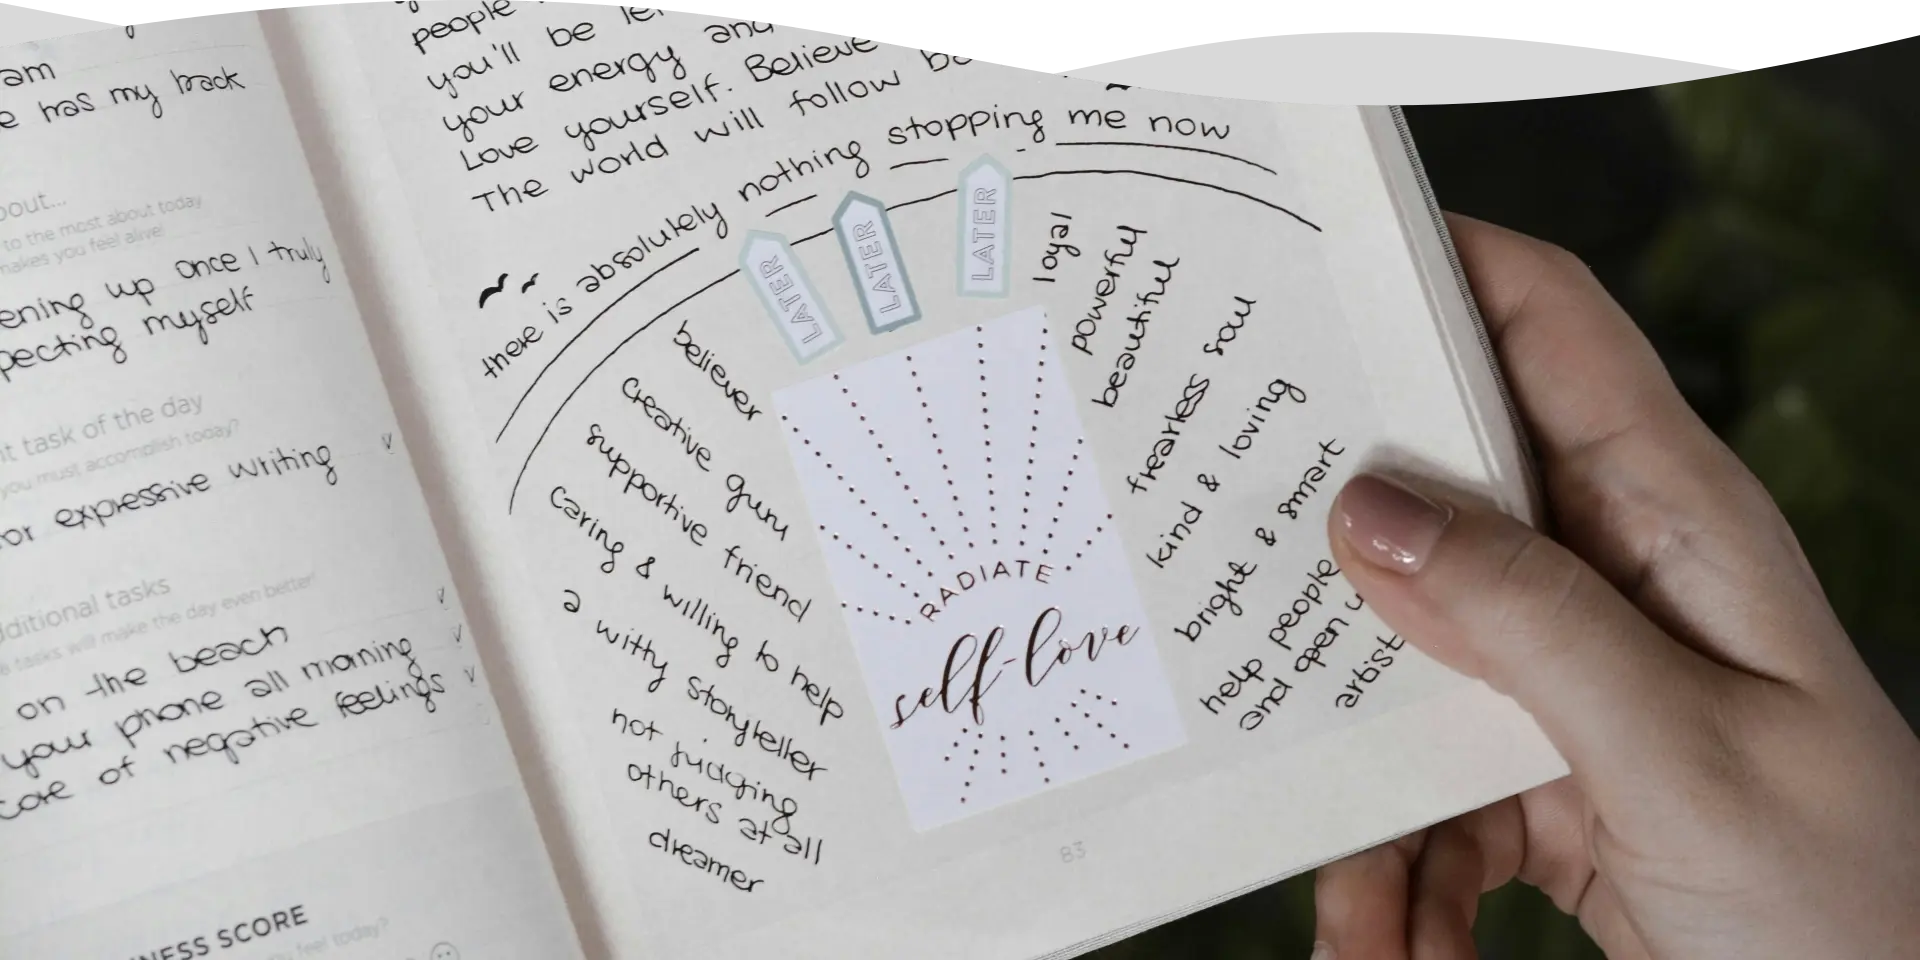 am
has my back
to the most about today
makes you feel alive!
ening up once I truly
pecting myself
task of the day
you must accomplish today?
or expressive writing
additional tasks
tasks will make the day even better!
on the beach
your phone all morning
care of negative feelings
NESS SCORE
feel today?
people
you'll be
your energy and
Love yourself. Believe
The world will follow
there is absolutely nothing stopping me now
LATER
LATER
LATER
believer
creative guru
supportive friend
caring & willing to help
a witty storyteller
not judging
others at all
dreamer
RADIATE
self-love
loyal
powerful
beautiful
fearless soul
kind & loving
bright & smart
help people
and open
artist
83